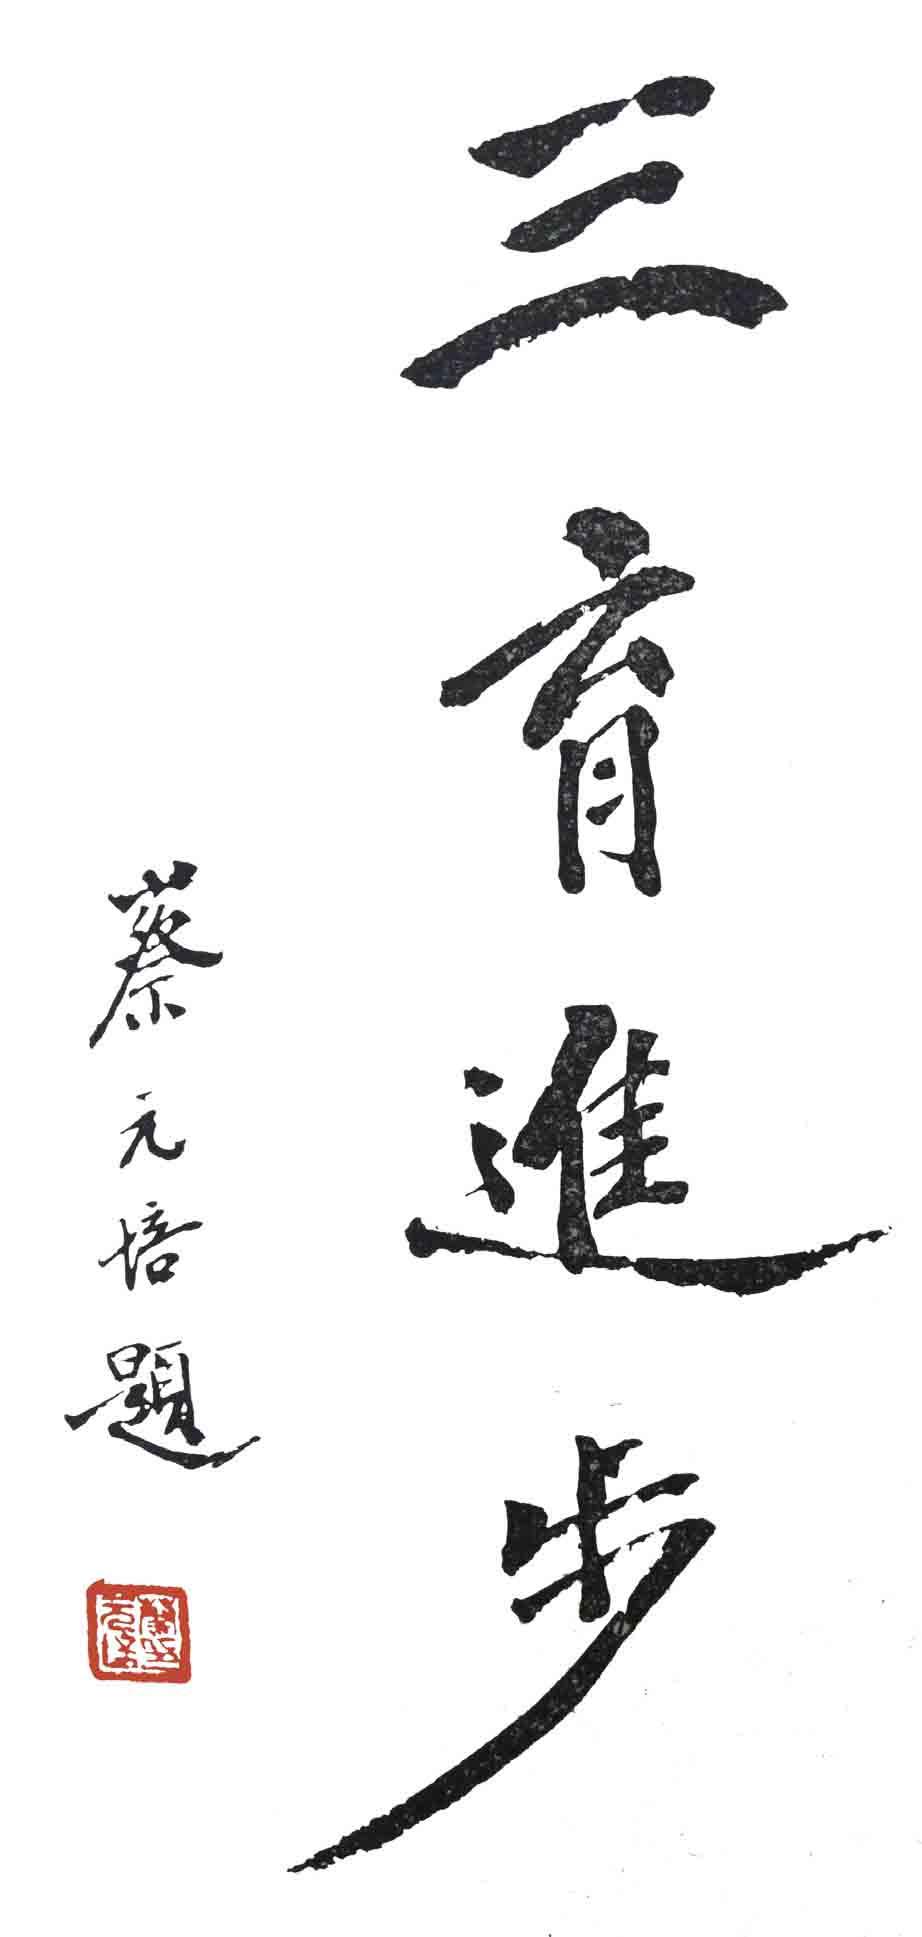 三育進步
蔡元培題